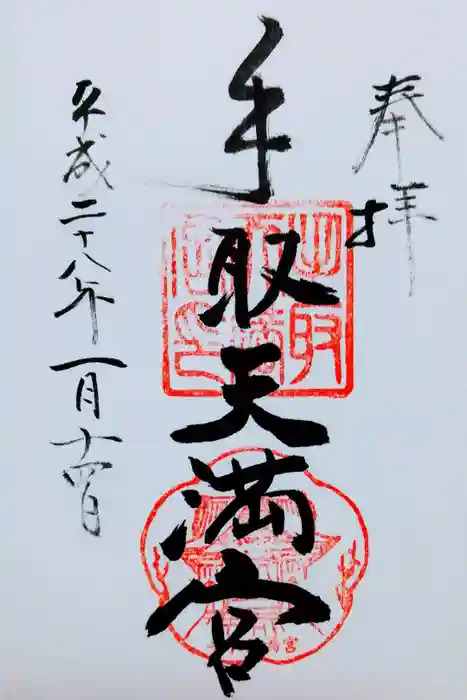 奉拝
手取天満宮
平成二十八年一月十四日